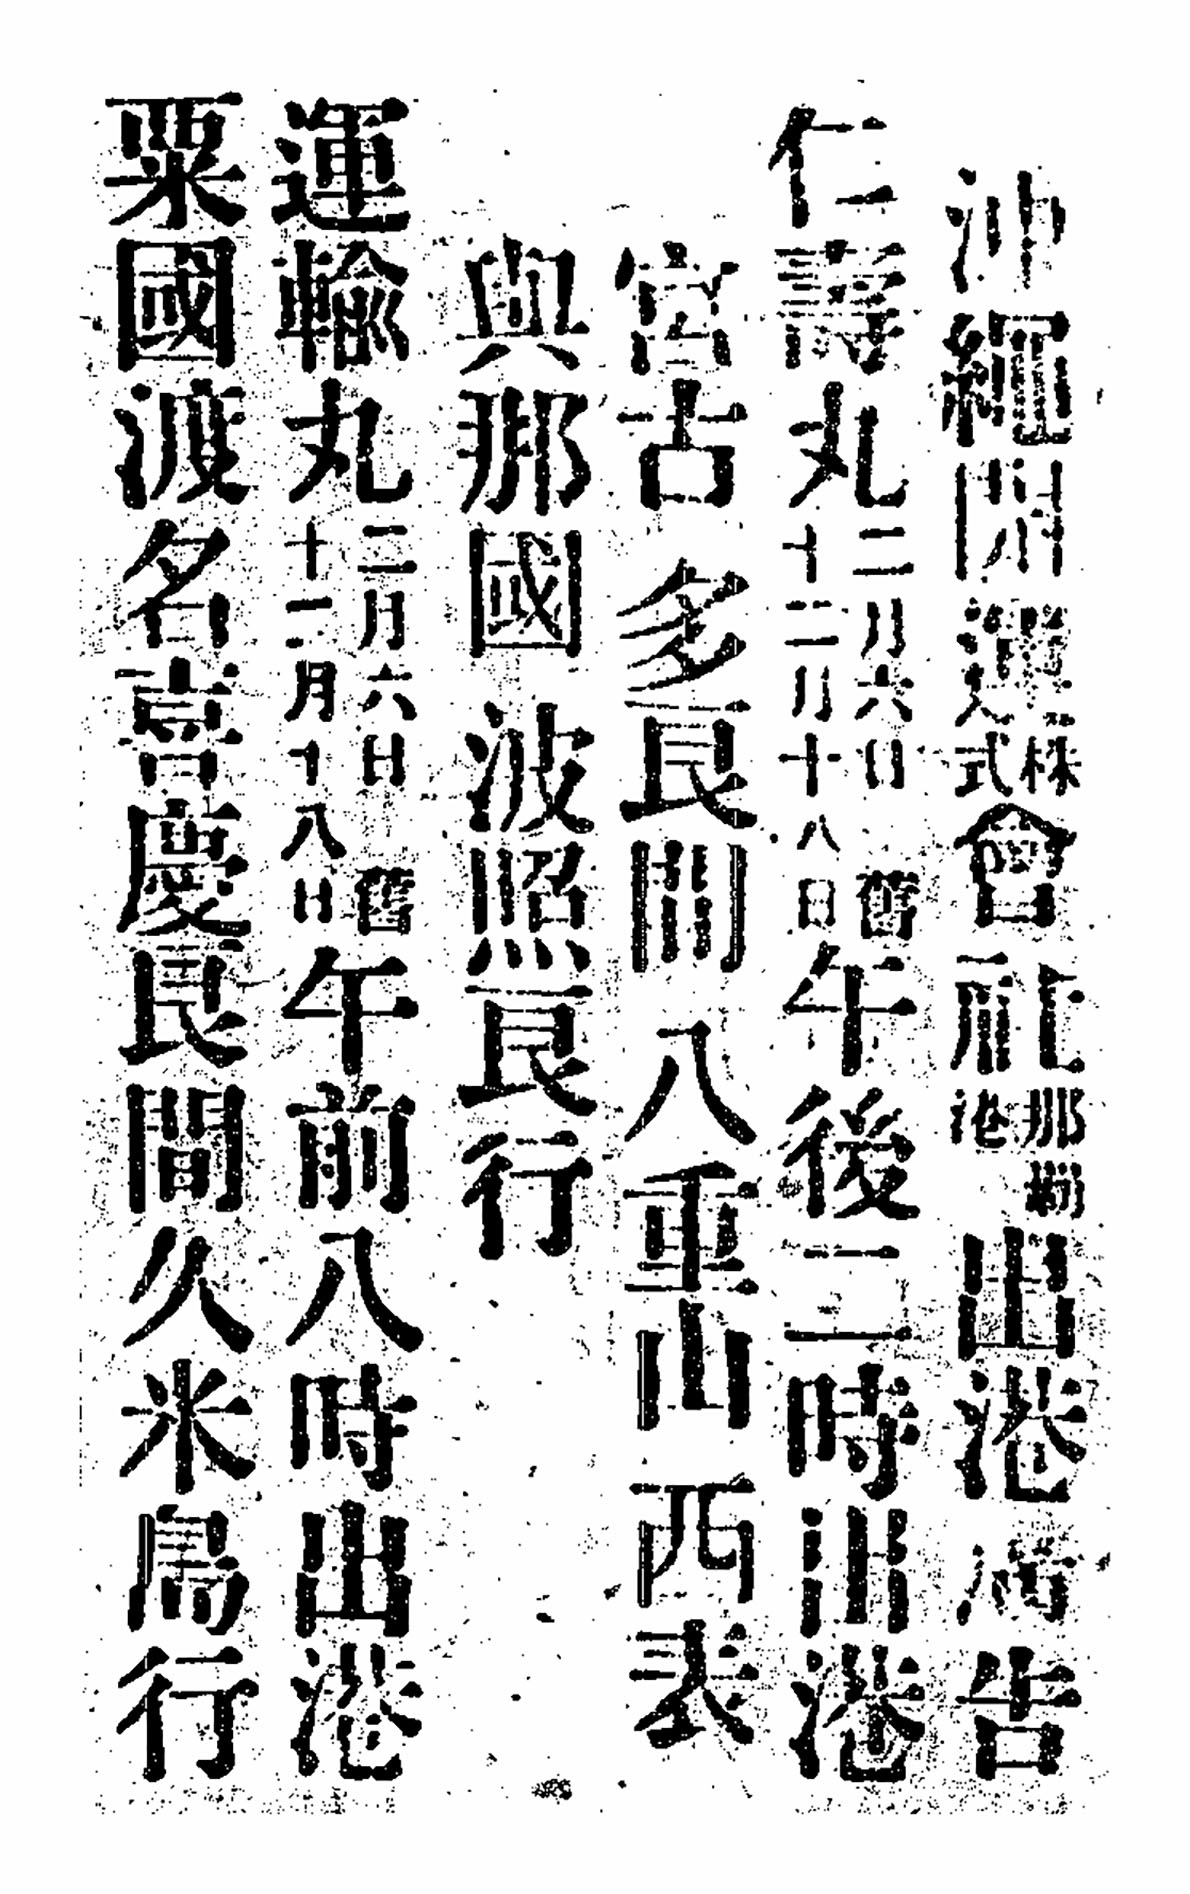 沖繩 株式會社那覇港出港廣告
仁壽丸二月六日舊十二月十八日午後二時出港
宮古 多良間 八重山 西表
與那國 波照良行
運輸丸二月六日舊十二月十八日午前八時出港
粟國渡名喜慶良間久米島行